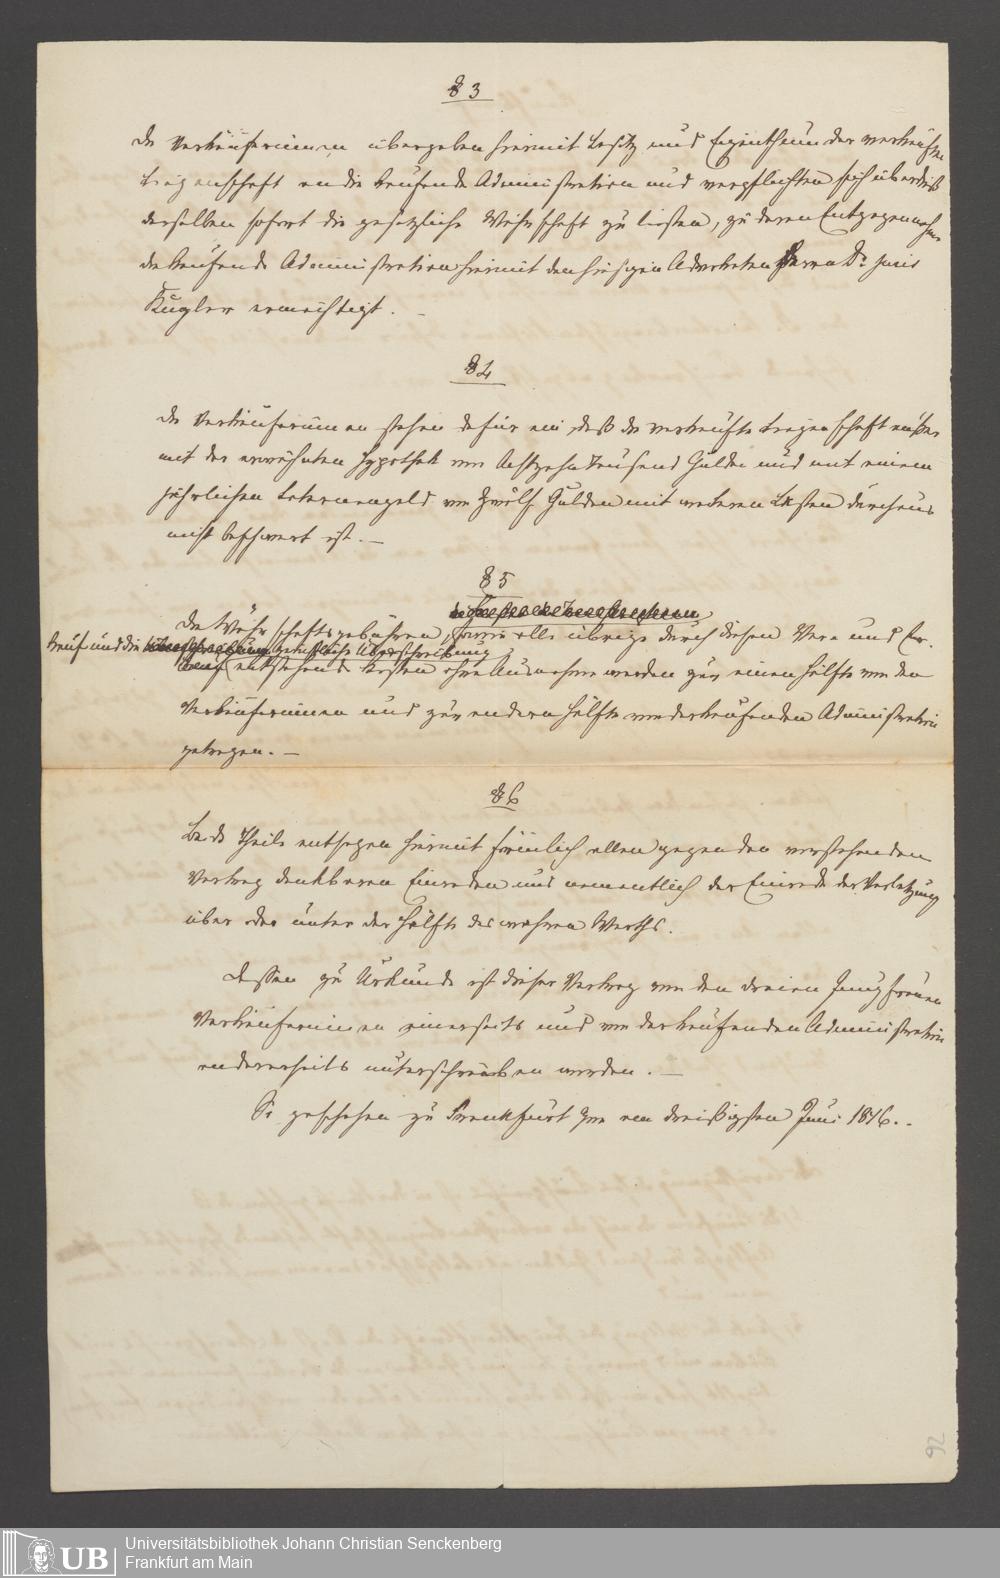 § 3
Die Verkäuferinnen übergeben hiermit Besitz und Eigenthum der verkauften
Liegenschaft an die kaufende Administration und verpflichten sich überdieß
derselben sofort die gesetzliche Währschaft zu leisten, zu deren Entgegennahme
die kaufende Administration hiermit den hiesigen Advokaten Herrn Dr. juris
Kugler ermächtigt. –
§ 4
Die Verkäuferinnen stehen dafür ein, daß die verkaufte Liegenschaft außer
mit der erwähnten Hypothek von Achtzehn Tausend Gulden und mit einem
jährlichen Laternengeld von Zwölf Gulden mit weiteren Lasten durchaus
nicht beschwert ist. –
§ 5
Die Währschaftsgebühren, sowie alle übrige durch diesen Ver- und An-
kauf und die gerichtliche Überschreibung
entstehende Kosten ohne Ausnahme werden zur einen Hälfte von den
Verkäuferinnen und zur andern Hälfte von der kaufenden Administration
getragen. –
§ 6
Beide Theile entsagen hiermit förmlich allen gegen den vorstehenden
Vertrag denkbaren Einreden und namentlich der Einrede der Verletzung
über oder unter der Hälfte des wahren Werths.
Dessen zu Urkunde ist dieser Vertrag von den dreien Jungfrauen
Verkäuferinnen einerseits und von der kaufenden Administration
andererseits unterschrieben worden. –
So geschehen zu Frankfurt am dreißigsten Juni 1846. .
92
UB
Universitätsbibliothek Johann Christian Senckenberg
Frankfurt am Main